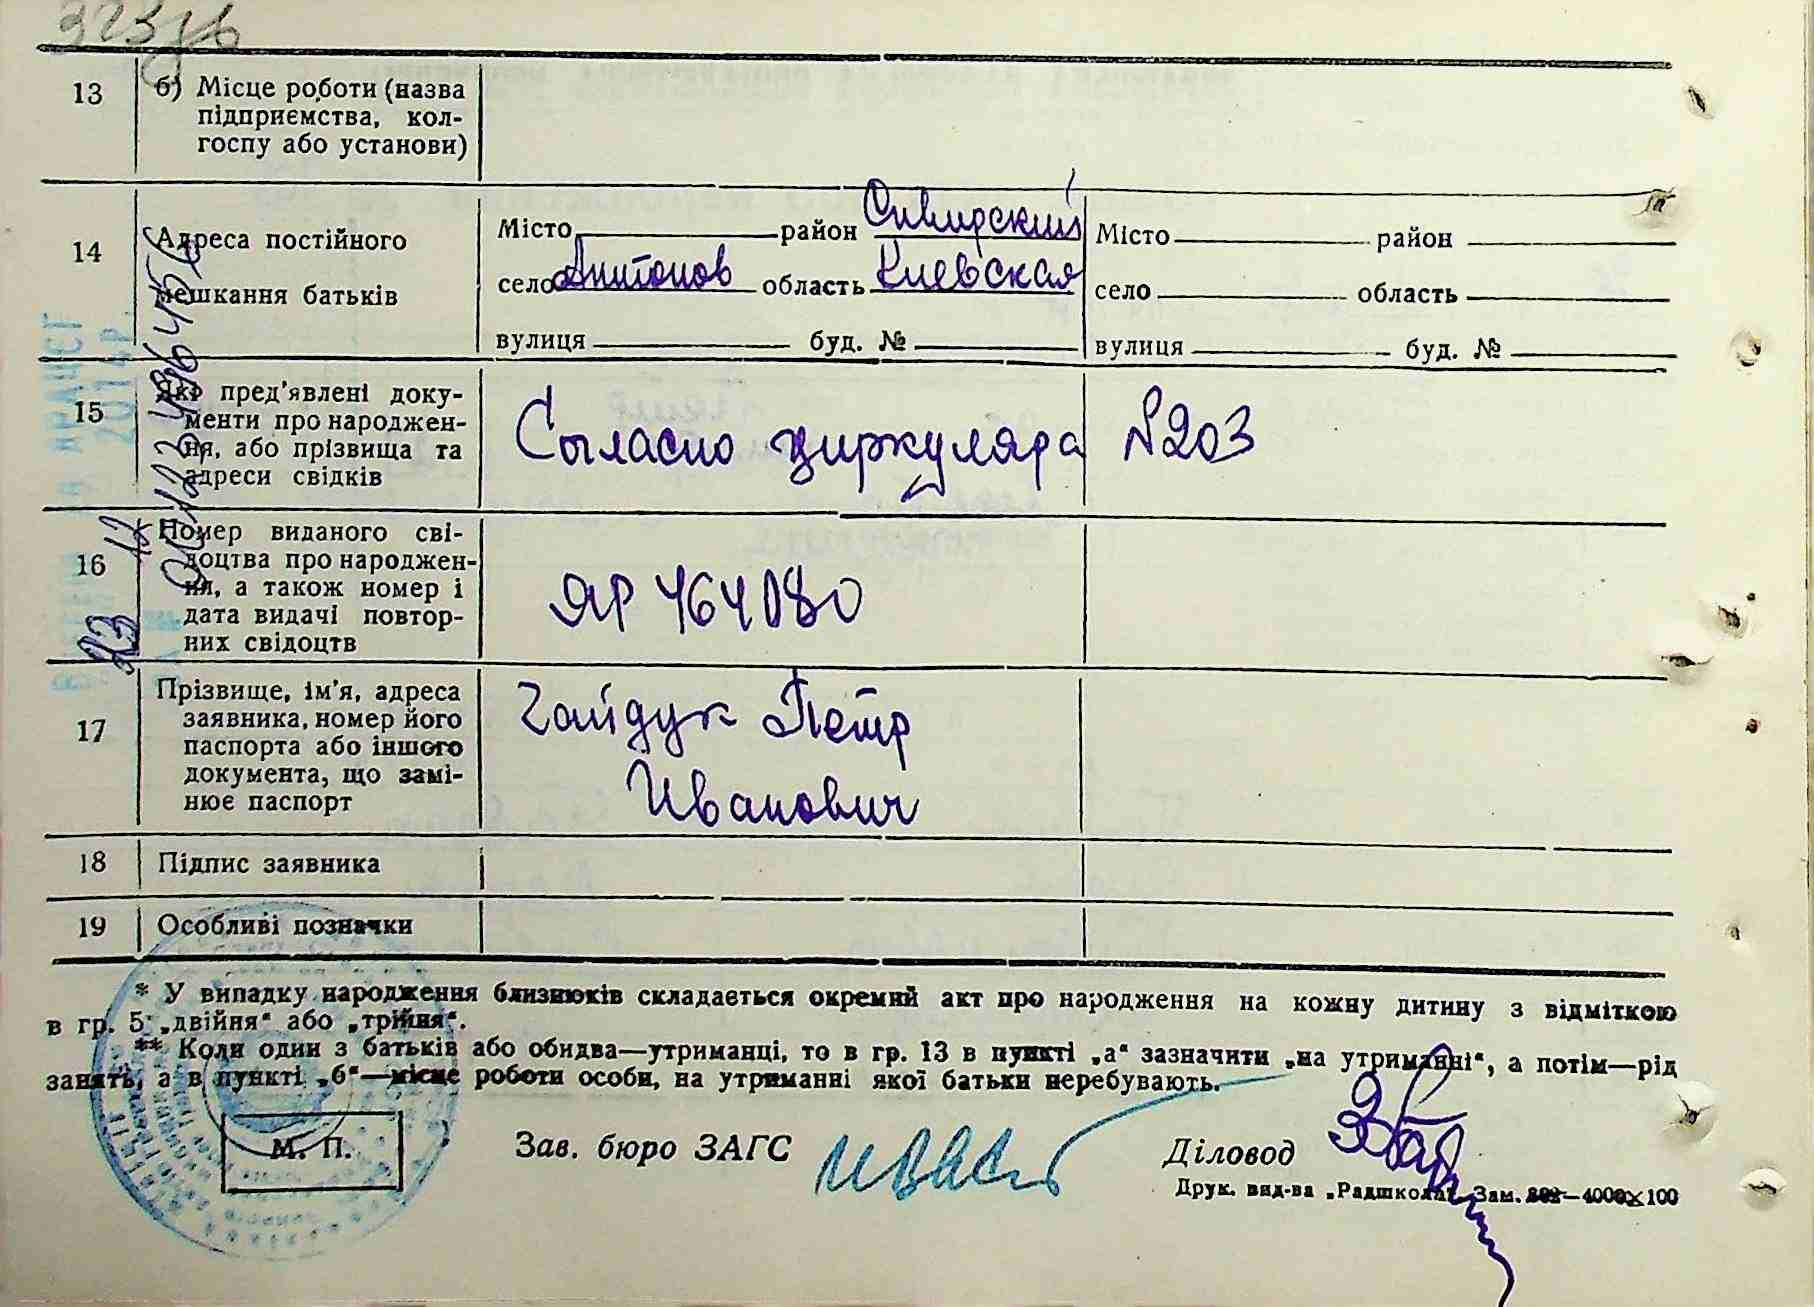 13
б) Місце роботи (назва
підприємства, кол-
госпу або установи)
14
Адреса постійного
мешкання батьків
Місто район Сквирский
село Антонов область Киевская
вулиця буд. №
Місто район
село область
вулиця буд. №
15
Які пред'явлені доку-
менти про народжен-
ня, або прізвища та
адреси свідків
Согласно циркуляра №203
16
Номер виданого сві-
доцтва про народжен-
ня, а також номер і
дата видачі повтор-
них свідоцтв
ЯР 464080
17
Прізвище, ім'я, адреса
заявника, номер його
паспорта або іншого
документа, що замі-
нює паспорт
Гайдук Петр
Иванович
18
Підпис заявника
19
Особливі позначки
* У випадку народження близнюків складається окремий акт про народження на кожну дитину з відміткою
в гр. 5 „двійня“ або „трійня“.
** Коли один з батьків або обидва—утриманці, то в гр. 13 в пункті „а“ зазначити „на утриманні“, а потім—рід
занять, а в пункті „б“—місце роботи особи, на утриманні якої батьки перебувають.
М. П.
Зав. бюро ЗАГС
Діловод
Друк. вид-ва „Радшкола“. Зам. —4000×100